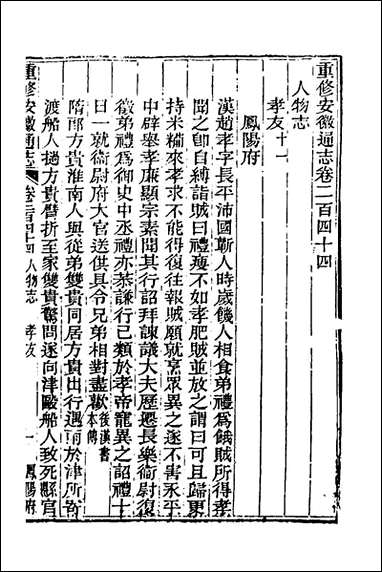 重修安徽通志卷二百四十四
人物志
孝友十一
鳳陽府
漢趙孝字長平沛國蘄人時歲饑人相食弟禮為餓賊所得孝
聞之卽自縛詣賊曰禮瘦不如孝肥賊並放之謂曰可且歸更
持米糒來孝求不能得復往報賊願就烹眾異之遂不害永平
中辟舉孝廉顯宗素聞其行詔拜諫議大夫歷遷長樂衞尉復
徵弟禮為御史中丞禮亦恭謙行已類於孝帝寵異之詔禮十
日一就衞尉府大官送供具令兄弟相對盡歡後漢書本傳
隋郎方貴淮南人與從弟雙貴同居方貴出行遇雨於津所寄
渡船人撾方貴臂折至家雙貴驚問遂向津毆船人致死縣官
重修安徽通志 卷二百四十四 人物志 孝友 一 鳳陽府